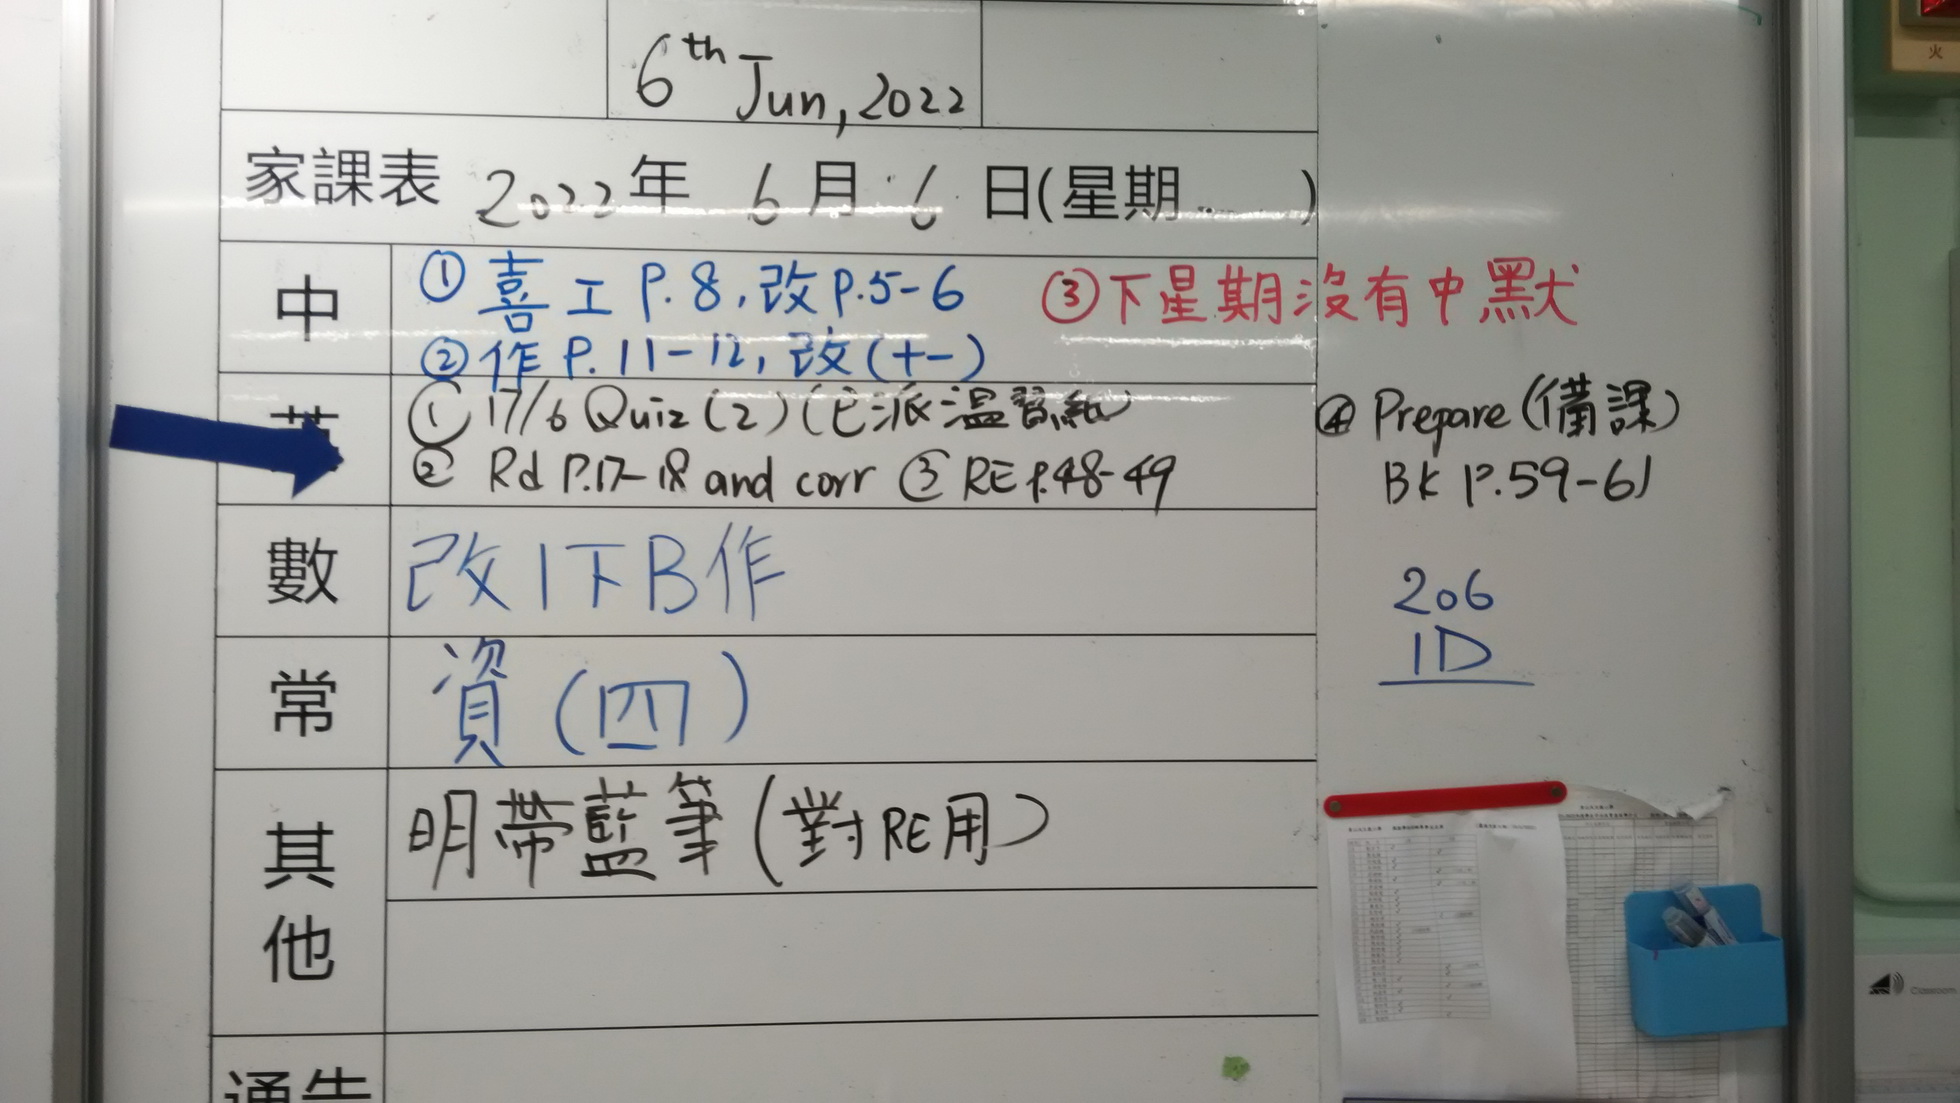 6th Jun, 2022
家課表 2022年 6月 6日(星期 )
中
① 喜工 P.8, 改P.5-6 ③下星期沒有中默
② 作 P.11-12, 改(十一)
① 17/6 Quiz (2) (已派溫習紙)
② Rd P.17-18 and corr ③ RE P.48-49
④ Prepare (備課)
BK P.59-61
數
改1下B作
206
1D
常
資(四)
其他
明帶藍筆(對RE用)
通告
火